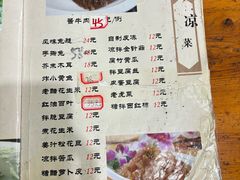 酱牛肉 45元/例
凉菜
风味兔腿 28元
手撕兔 58元
芥末木耳 18元
炸小黄鱼
老醋花生米 12元
红油百叶
拌腐豆腐 12元
煮花生米 12元
姜汁松花蛋 12元
凉拌苦瓜 12元
糖醋萝卜皮 12元
自制皮冻 12元
凉拌金针菇 12元
腐竹黄瓜 12元
拌豆腐丝 12元
皮蛋豆腐 12元
老虎菜 12元
糖拌西红柿 12元